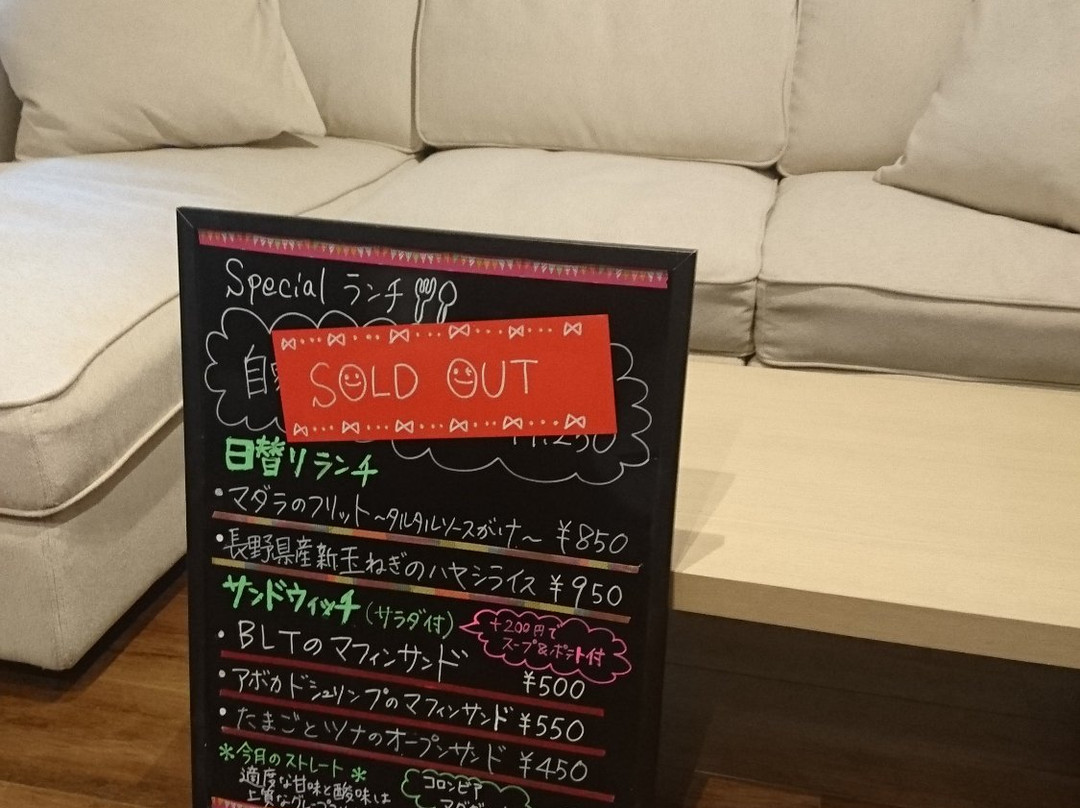 Special ランチ
自
SOLD OUT
¥1,250
日替りランチ
・マダラのフリット～タルタルソースがけ～ ¥850
・長野県産新玉ねぎのハヤシライス ¥950
サンドウィッチ(サラダ付)
+200円で
スープ&ポテト付
・BLTのマフィンサンド ¥500
・アボカドシュリンプのマフィンサンド ¥550
・たまごとツナのオープンサンド ¥450
*今月のストレート*
適度な甘味と酸味は
上質な
コロンビア